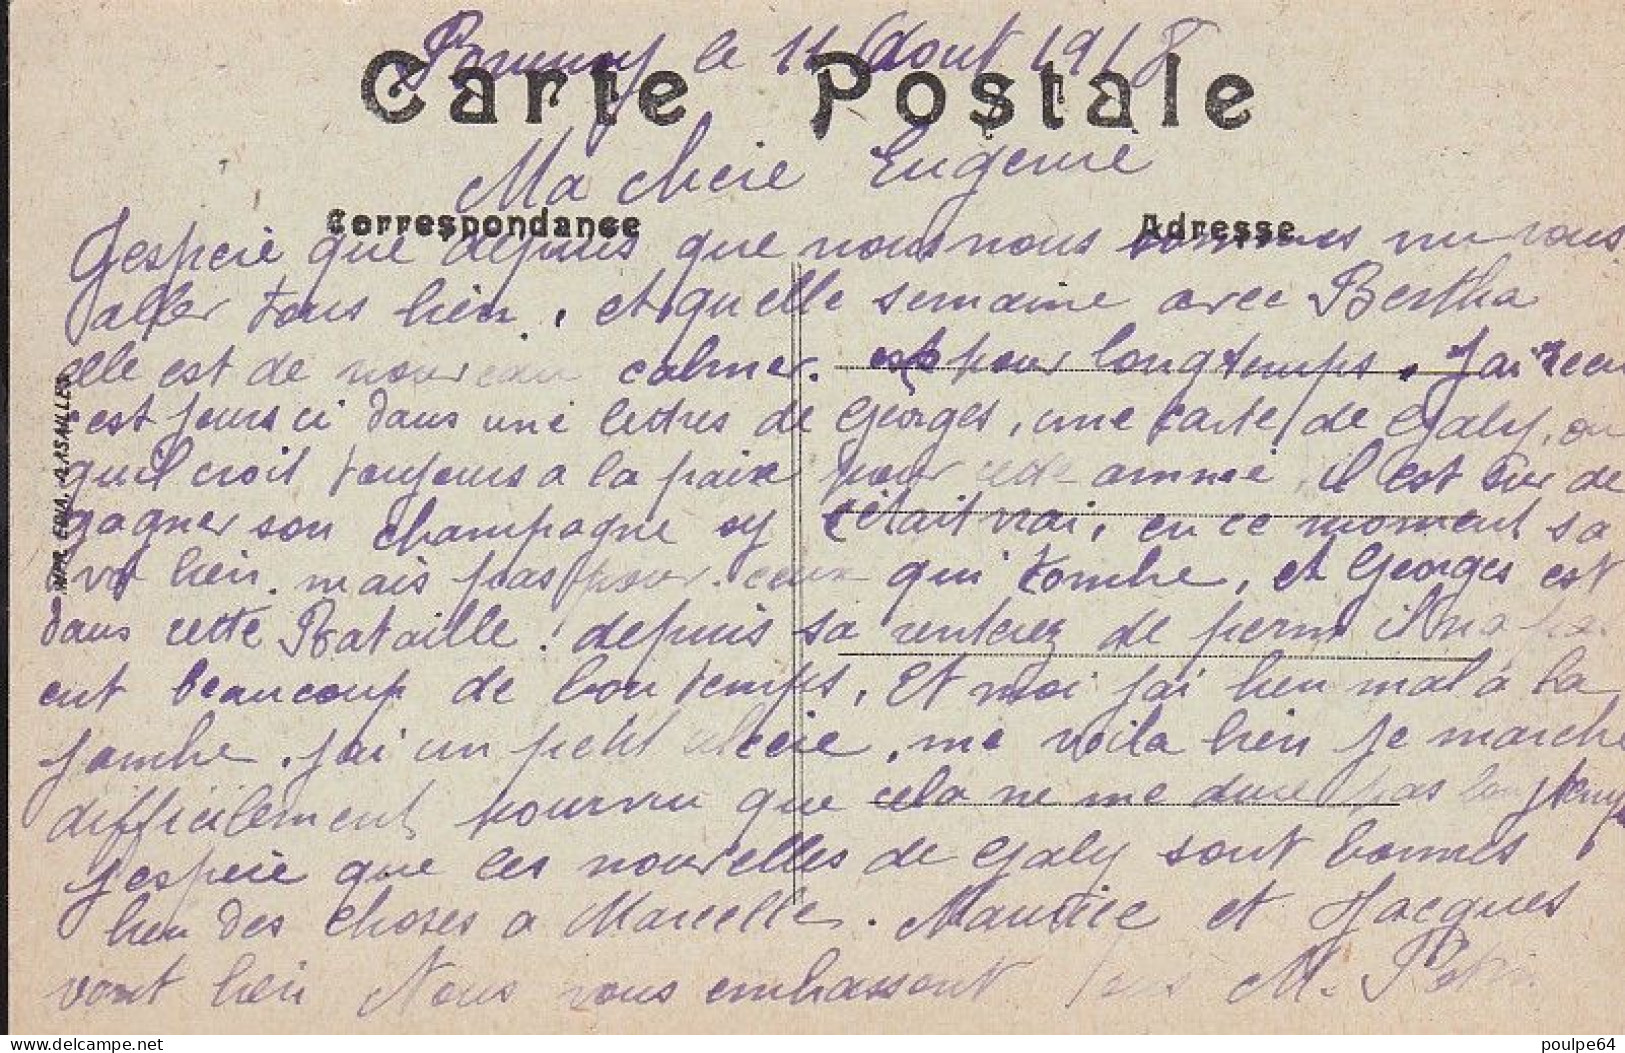 le 11 Aout 1918
Carte Postale
Ma cheie Eugenie
Correspondance Adresse
J'espeie que depuis que nous nous sommes vu vous
aller tous bien, et quelle semaine avec Bertha
elle est de nouveau calmer. est pour longtemps. J'ai recu
c'est jours ci dans une lettres de Georges, une carte de Galy, ou
qu'il croit toujours a la paix pour cette annnee, il est sur de
gagner son champagne sy c'était vrai, en ce moment sa
va bien. mais pas pour ceux qui tombe, et Georges est
dans cette Bataille. depuis sa rentrez de perm il n'a pas
eut beaucoup de bon temps. Et moi j'ai bien mal à la
jambe. j'ai un petit ulceie, me voila bien je marche
difficilement pourvu que cela ne me dure pas longtemps
j'espeie que les nouvelles de Galy sont bonnes
bien des choses a Marcelle. Maurice et Jacques
vont bien Nous vous embrassont M.
IMP. EDIA. VERSAILLES
delcampe.net
poulpe64